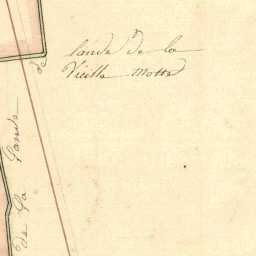 lande de la
Vieille Motte
de la Lande
de